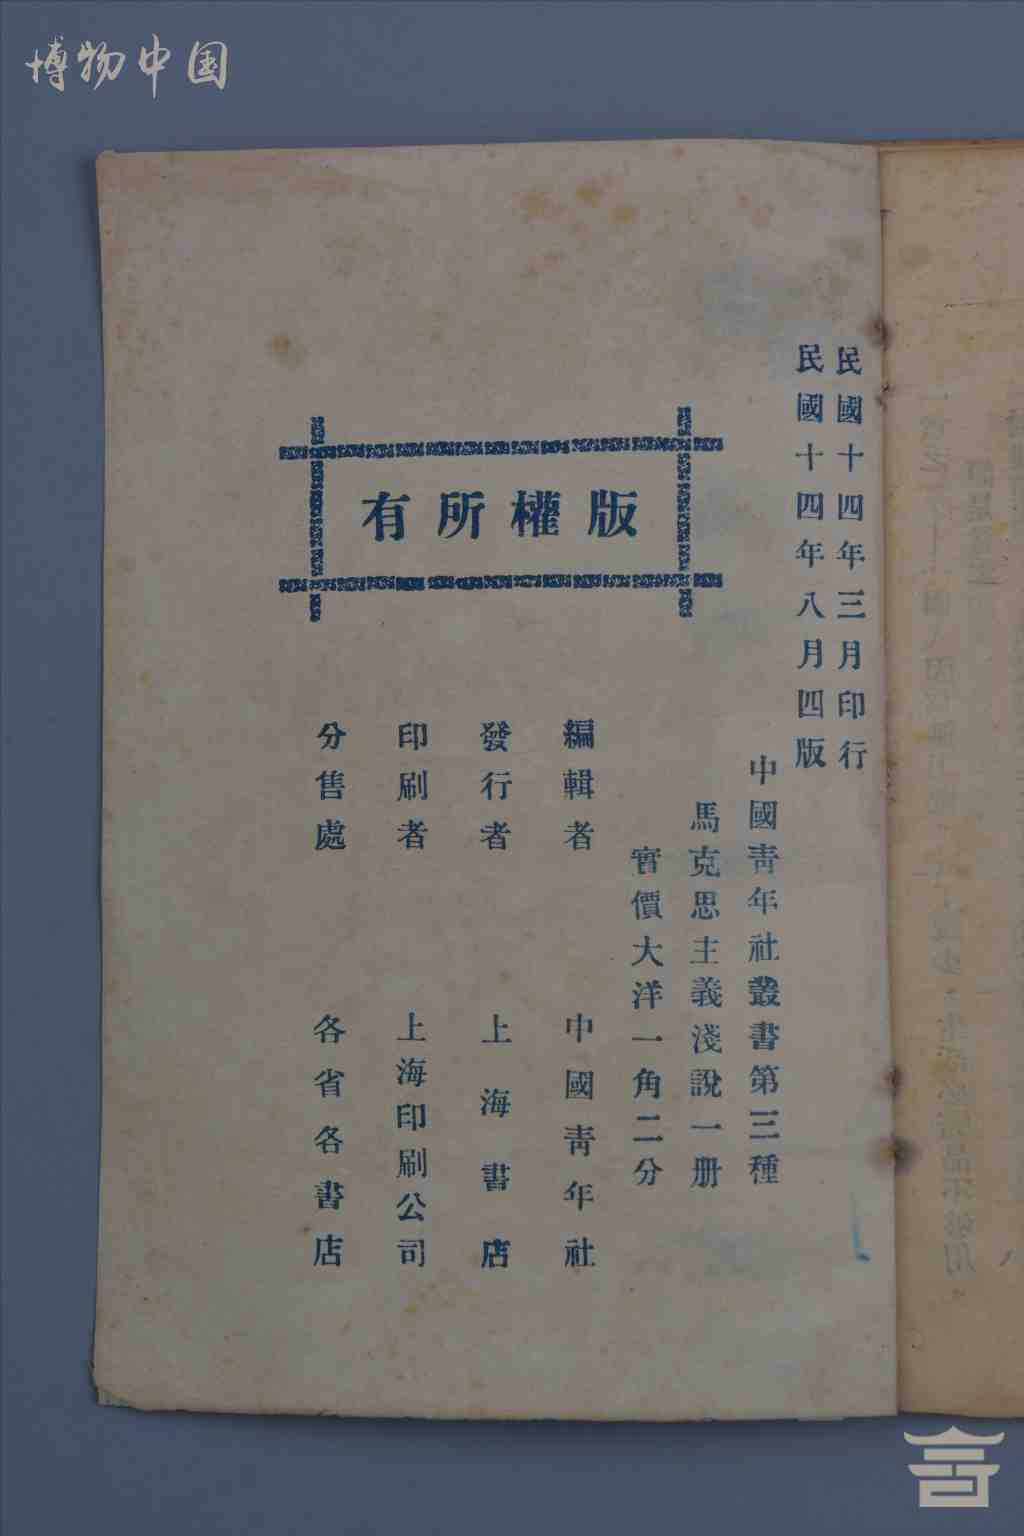 博物中国
民國十四年三月印行
民國十四年八月四版
中國青年社叢書第三種
馬克思主義淺說一册
實價大洋一角二分
版權所有
編輯者 中國青年社
發行者 上海書店
印刷者 上海印刷公司
分售處 各省各書店